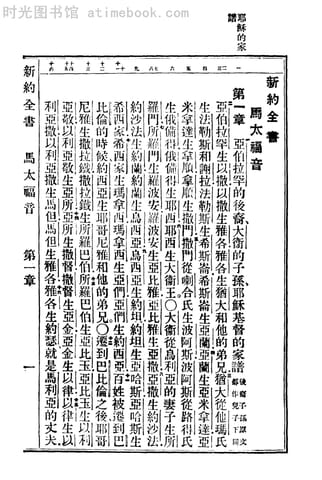 时光图书馆 atimebook.com
耶穌的家
譜
新約全書
馬太福音
第一章 亞伯拉罕的後裔大衛的子孫、耶穌基督的家譜後裔子孫原文都作兒子下同
亞伯拉罕生以撒以撒生雅各雅各生猶大和他的弟兄猶大從他瑪氏
生法勒斯和謝拉法勒斯生希斯崙希斯崙生亞蘭亞蘭生亞米拿達亞
米拿達生拿順拿順生撒門撒門從喇合氏生波阿斯波阿斯從路得氏
生俄備得俄備得生耶西耶西生大衛王○大衛從烏利亞的妻子生所
羅門所羅門生羅波安羅波安生亞比雅亞比雅生亞撒亞撒生約沙法
約沙法生約蘭約蘭生烏西亞烏西亞生約坦約坦生亞哈斯亞哈斯生
希西家希西家生瑪拿西瑪拿西生亞們亞們生約西亞百姓被遷到巴
比倫的時候約西亞生耶哥尼雅和他的弟兄○遷到巴比倫之後耶哥
尼雅生撒拉鐵撒拉鐵生所羅巴伯所羅巴伯生亞比玉亞比玉生以利
亞敬以利亞敬生亞所亞所生撒督撒督生亞金亞金生以律以律生以
利亞撒以利亞撒生馬但馬但生雅各雅各生約瑟就是馬利亞的丈夫
新約全書 馬太福音 第一章 一